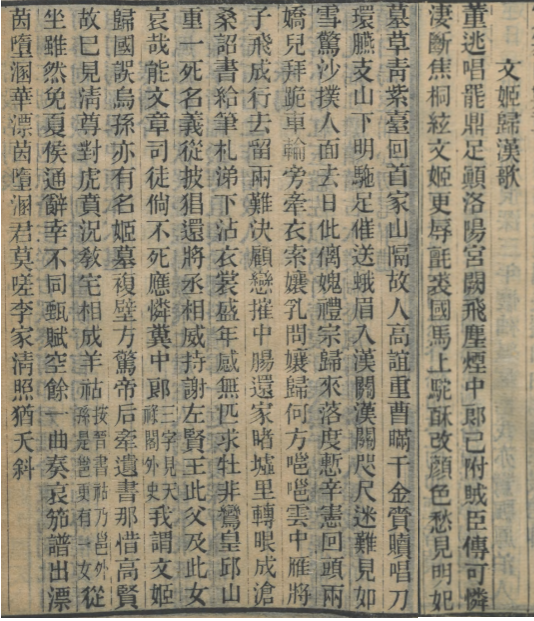 文姬歸漢歌
董逃唱罷鼎足顛洛陽宮闕飛塵煙中郎已附賊臣傳可憐
淒斷焦桐絃文姬更辱氈裘國馬上駝酥改顏色愁見明妃
墓草青紫臺回首家山隔故人高誼重曹瞞千金賞贖唱刀
環臙支山下明駞足催送蛾眉入漢關漢關咫尺迷難見如
雪驚沙撲人面去日仳㒧媿禮宗歸來落度慙辛憲回頭兩
嬌兒拜跪車輪旁牽衣索孃乳問孃歸何方嗈嗈雲中雁將
子飛成行去留兩難決顧戀摧中腸還家暗墟里轉眼成滄
桑詔書給筆札涕下沾衣裳盛年感無匹求牡非鸞皇邱山
重一死名義從披猖還將丞相威持謝左賢王此父及此女
哀哉能文章司徒倘不死應憐糞中郎三字見天祿閣外史我謂文姬
歸國誤烏孫亦有名姬墓複壁方驚帝后牽遺書那惜高賢
故巳見清尊對虎賁況教宅相成羊祜按晉書祜乃邕外孫是邕更有一女從
坐雖然免夏侯通辭幸不同甄賦空餘一曲奏哀笳譜出漂
茵墮溷華漂茵墮溷君莫嗟李家清照猶天斜